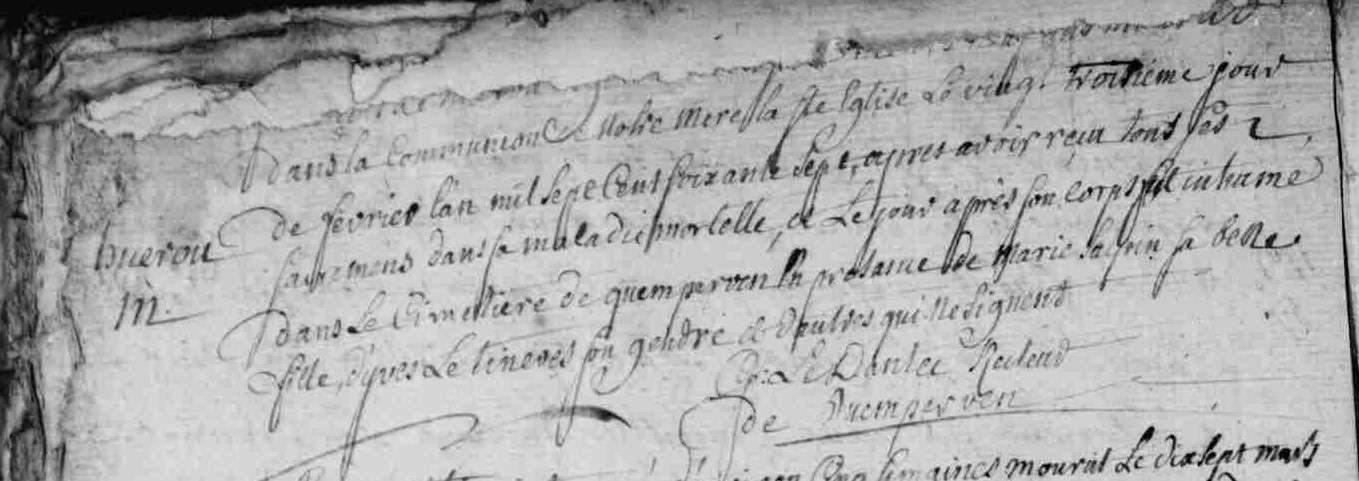 dans la Communion de Notre mere la ste Eglise Le vingt troisième jour
de fevrier l'an mil sept Cent soixante sept, apres avoir reçu tous ses
huerou
sacremens dans sa maladie mortelle, et Le jour après son corps fut inhumé
m.
dans Le Cimettiere de quemperven En presance de Marie sa
belle
fille, d'yves Le tineves son gendre et d'autres qui Ne signent
Le Dantec Recteur
de quemperven
semaines mourut Le dix sept mars